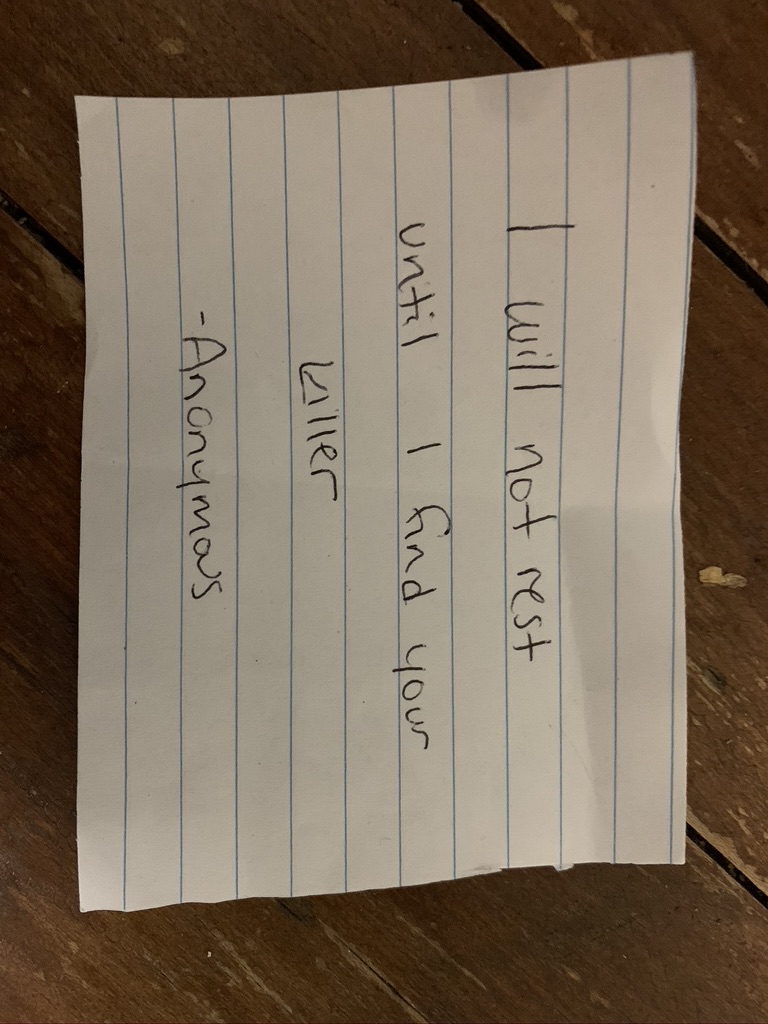 I will not rest
until I find your
killer
-Anonymous